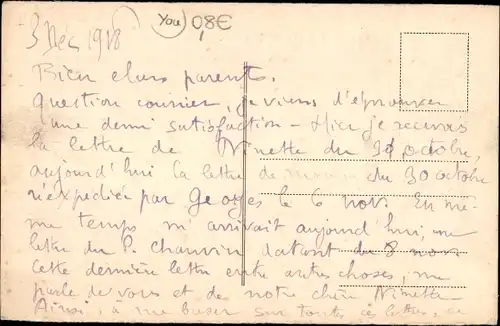 3 Dec 1918
You 0,8€
Bien chers parents.
Question courrier, je viens d'éprouver
une demi satisfaction - Hier je recevais
la lettre de Ninette du 30 octobre,
aujourd'hui la lettre de maman du 30 octobre
réexpediée par Georges le 6 nov. En mê-
me temps m'arrivait aujourd'hui, une
lettre du P. Chauvin datant du 8 nov
cette dernière lettre entre autres choses, me
parle de vous et de notre chère Ninette
Ainsi, à me baser sur toutes ces lettres, ce